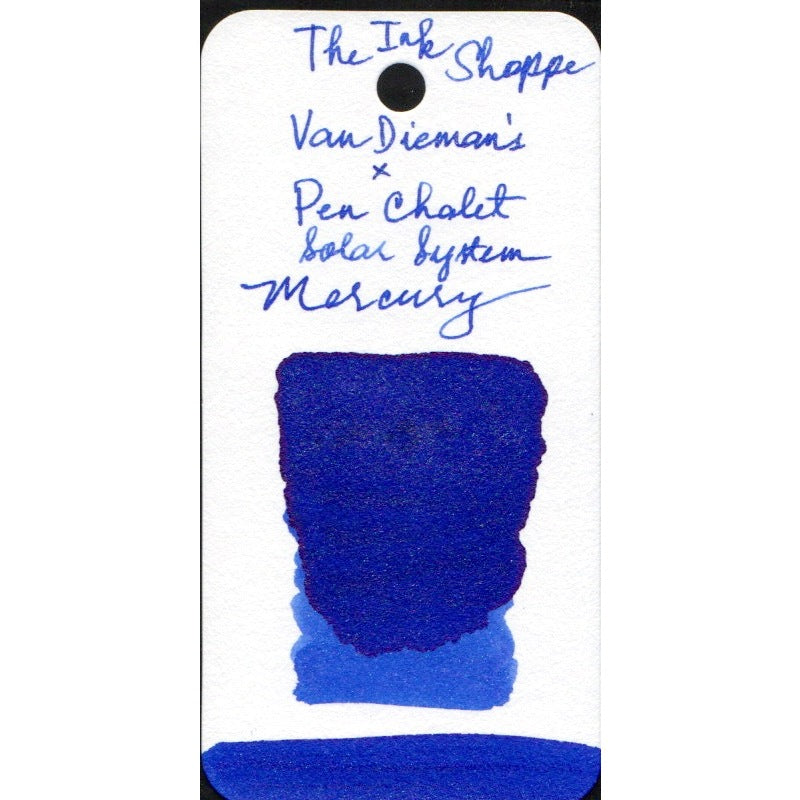 The Ink Shoppe
Van Dieman's
x
Pen Chalet
Solar System
Mercury